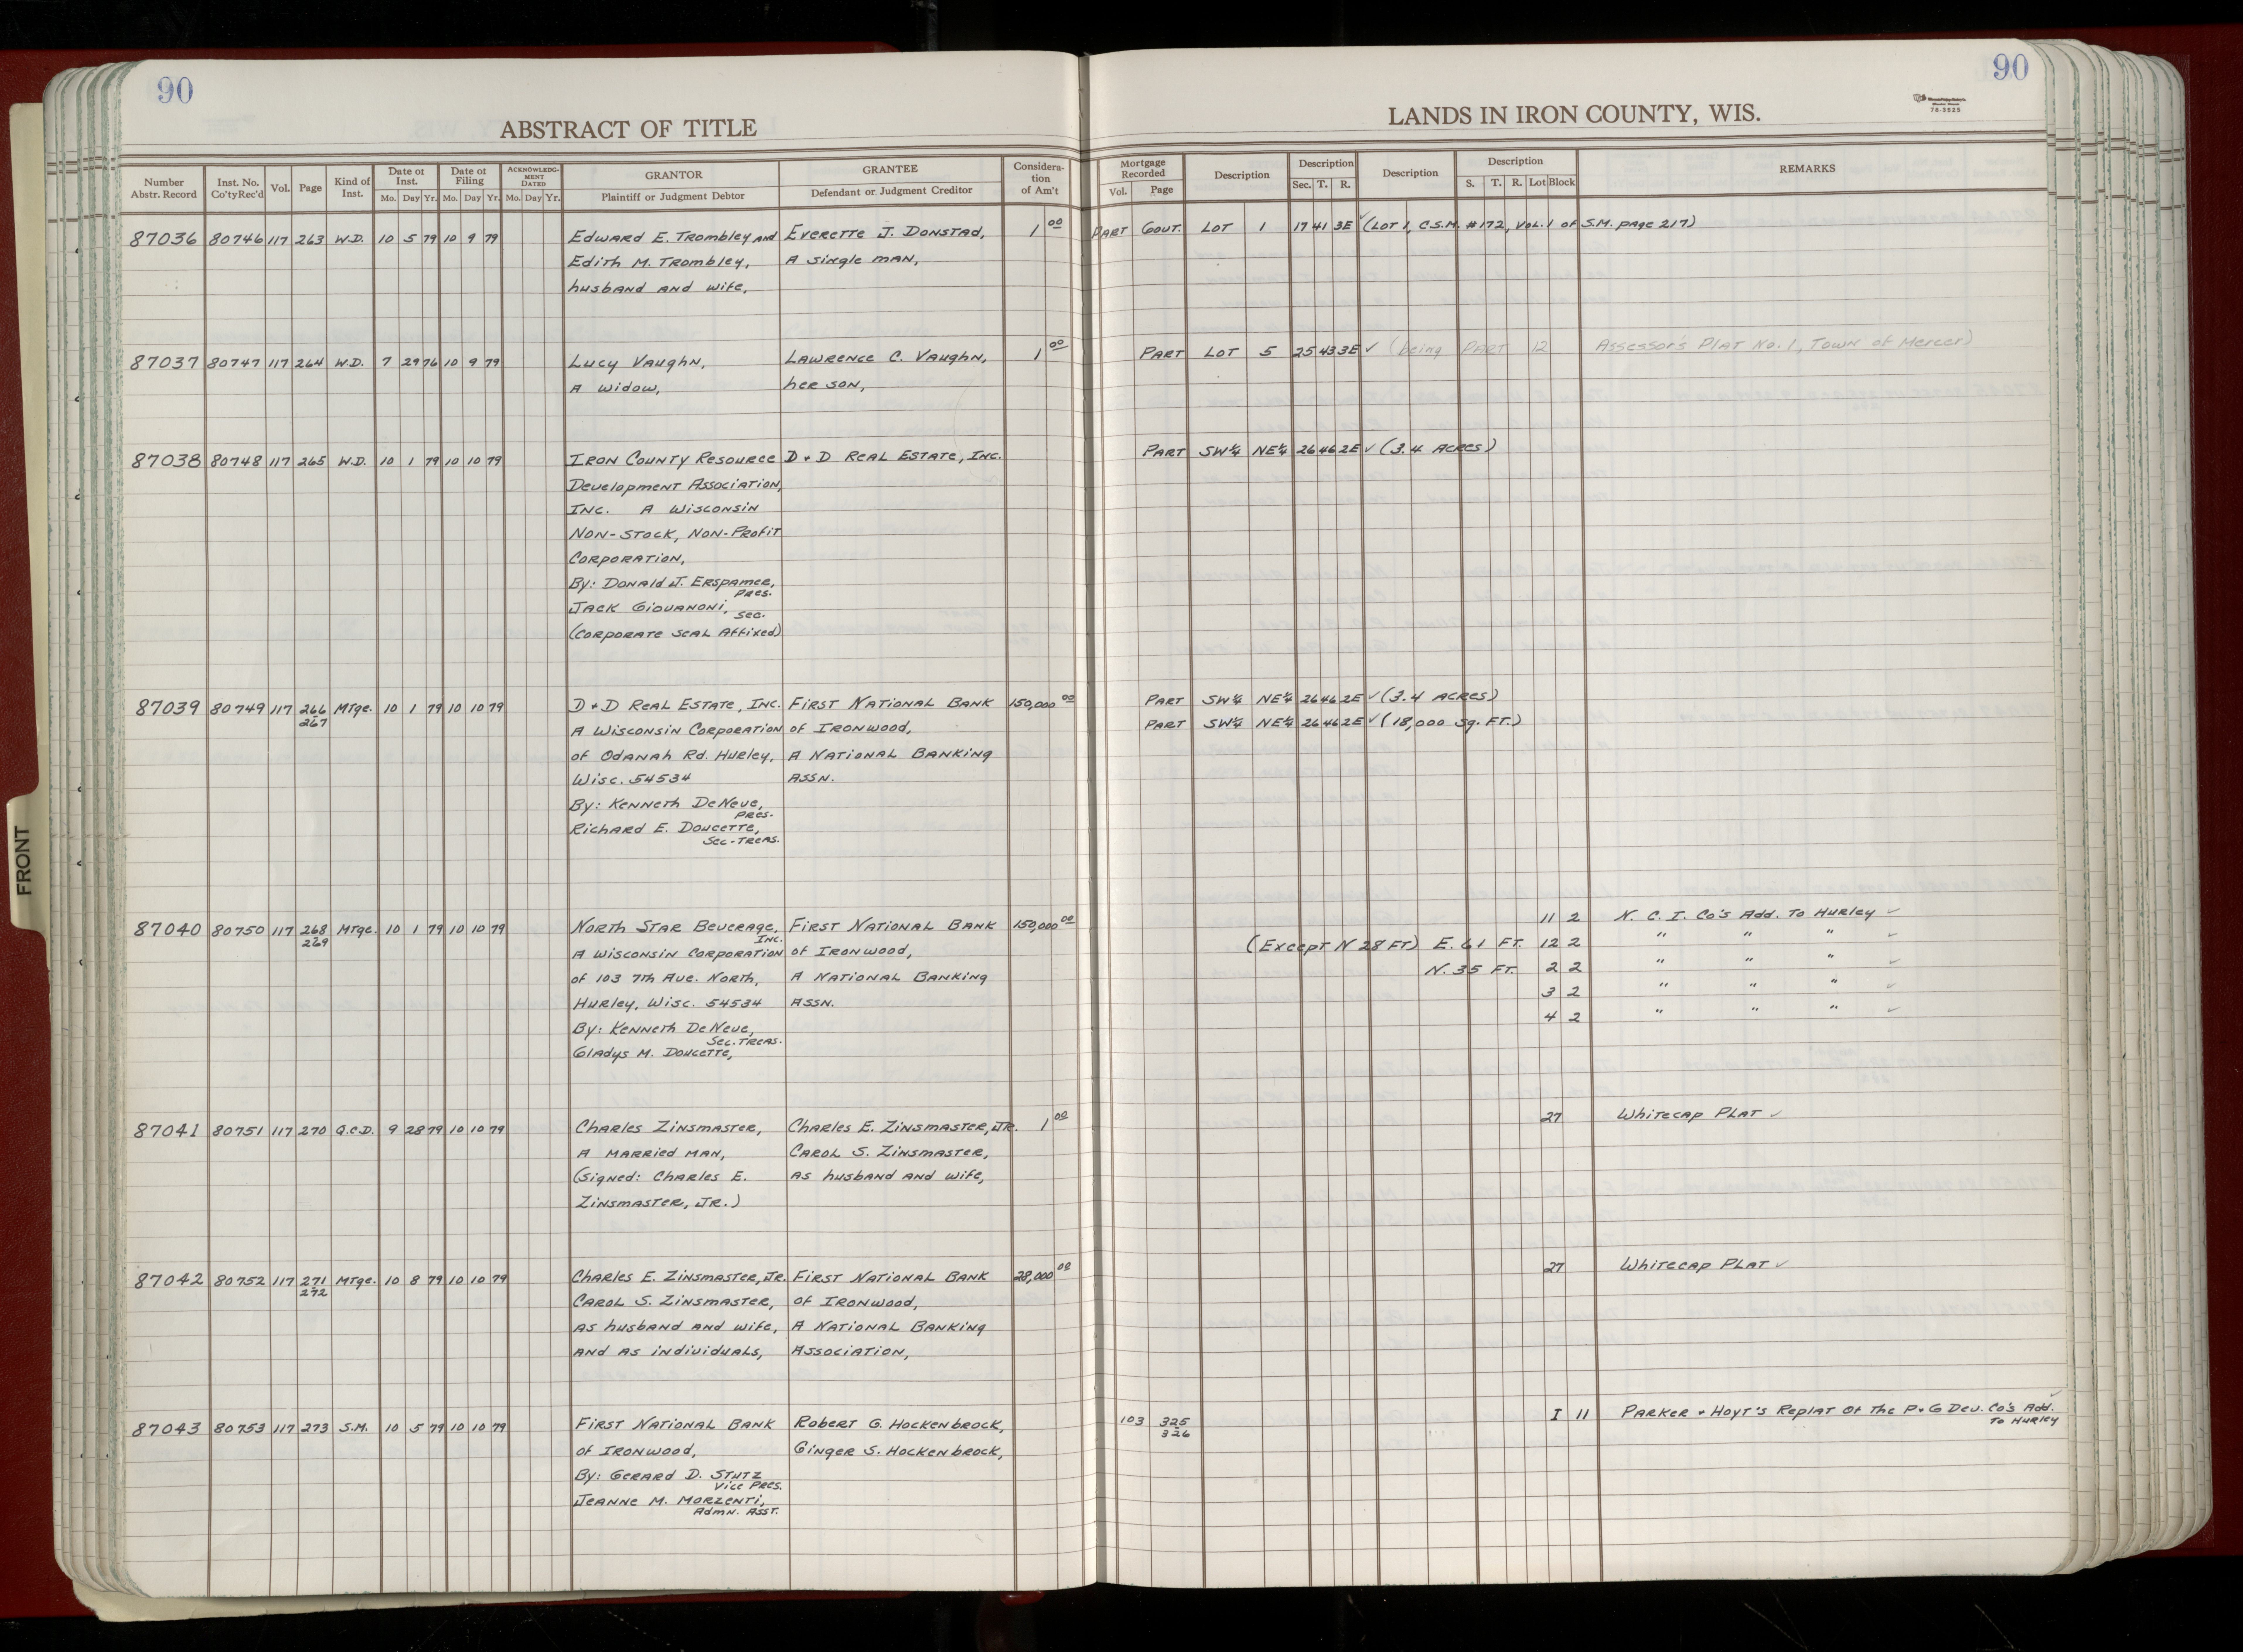 90
90
ABSTRACT OF TITLE
LANDS IN IRON COUNTY, WIS.
78-3525
FRONT
Number Abstr. Record | Inst. No. Co'ty Rec'd | Vol. | Page | Kind of Inst. | Date of Inst. Mo. Day Yr. | Date of Filing Mo. Day Yr. | ACKNOWLEDGMENT DATED Mo. Day Yr. | GRANTOR Plaintiff or Judgment Debtor | GRANTEE Defendant or Judgment Creditor | Consideration of Am't | Mortgage Recorded Vol. Page | Description | Description Sec. T. R. | Description | Description S. T. R. Lot Block | REMARKS
87036 80746 117 263 W.D. 10 5 79 10 9 79 Edward E. Trombley and Everette J. Donstad, 1 00 PART GOVT. LOT 1 17 41 3E ✓ (LOT 1, C.S.M. #172, VOL. 1 of S.M. page 217)
Edith M. Trombley, A single man,
husband and wife,
87037 80747 117 264 W.D. 7 29 76 10 9 79 Lucy Vaughn, Lawrence C. Vaughn, 1 00 PART LOT 5 25 43 3E ✓ (being PART 12 Assessor's Plat No. 1, Town of Mercer)
A widow, her son,
87038 80748 117 265 W.D. 10 1 79 10 10 79 Iron County Resource D + D Real Estate, Inc. PART SW¼ NE¼ 26 46 2E ✓ (3.4 Acres)
Development Association,
Inc. A Wisconsin
Non-Stock, Non-Profit
Corporation,
By: Donald J. Erspamer,
Pres.
Jack Giovanoni,
Sec.
(Corporate Seal Affixed)
87039 80749 117 266 267 Mtge. 10 1 79 10 10 79 D + D Real Estate, Inc. First National Bank 150,000 00 PART SW¼ NE¼ 26 46 2E ✓ (3.4 Acres)
A Wisconsin Corporation of Ironwood, PART SW¼ NE¼ 26 46 2E ✓ (18,000 Sq. Ft.)
of Odanah Rd. Hurley, A National Banking
Wisc. 54534 Assn.
By: Kenneth DeNeve,
Pres.
Richard E. Doucette,
Sec-Treas.
87040 80750 117 268 269 Mtge. 10 1 79 10 10 79 North Star Beverage, First National Bank 150,000 00 11 2 N. C. I. Co's Add. To Hurley ✓
Inc.
A Wisconsin Corporation of Ironwood, (Except N 28 FT) E. 61 FT. 12 2 " " " ✓
of 103 7th Ave. North, A National Banking N. 35 FT. 2 2 " " " ✓
Hurley, Wisc. 54534 Assn. 3 2 " " " ✓
By: Kenneth DeNeve, 4 2 " " " ✓
Sec. Treas.
Gladys M. Doucette,
87041 80751 117 270 Q.C.D. 9 28 79 10 10 79 Charles Zinsmaster, Charles E. Zinsmaster, Jr. 1 00 27 Whitecap Plat ✓
A married man, Carol S. Zinsmaster,
(Signed: Charles E. as husband and wife,
Zinsmaster, Jr.)
87042 80752 117 271 272 Mtge. 10 8 79 10 10 79 Charles E. Zinsmaster, Jr. First National Bank 28,000 00 27 Whitecap Plat ✓
Carol S. Zinsmaster, of Ironwood,
as husband and wife, A National Banking
and as individuals, Association,
87043 80753 117 273 S.M. 10 5 79 10 10 79 First National Bank Robert G. Hockenbrock, 103 325 326 I 11 Parker + Hoyt's Replat of the P + G Dev. Co's Add. ✓
To Hurley
of Ironwood, Ginger S. Hockenbrock,
By: Gerard D. Stutz
Vice Pres.
Jeanne M. Morzenti,
Admn. Asst.